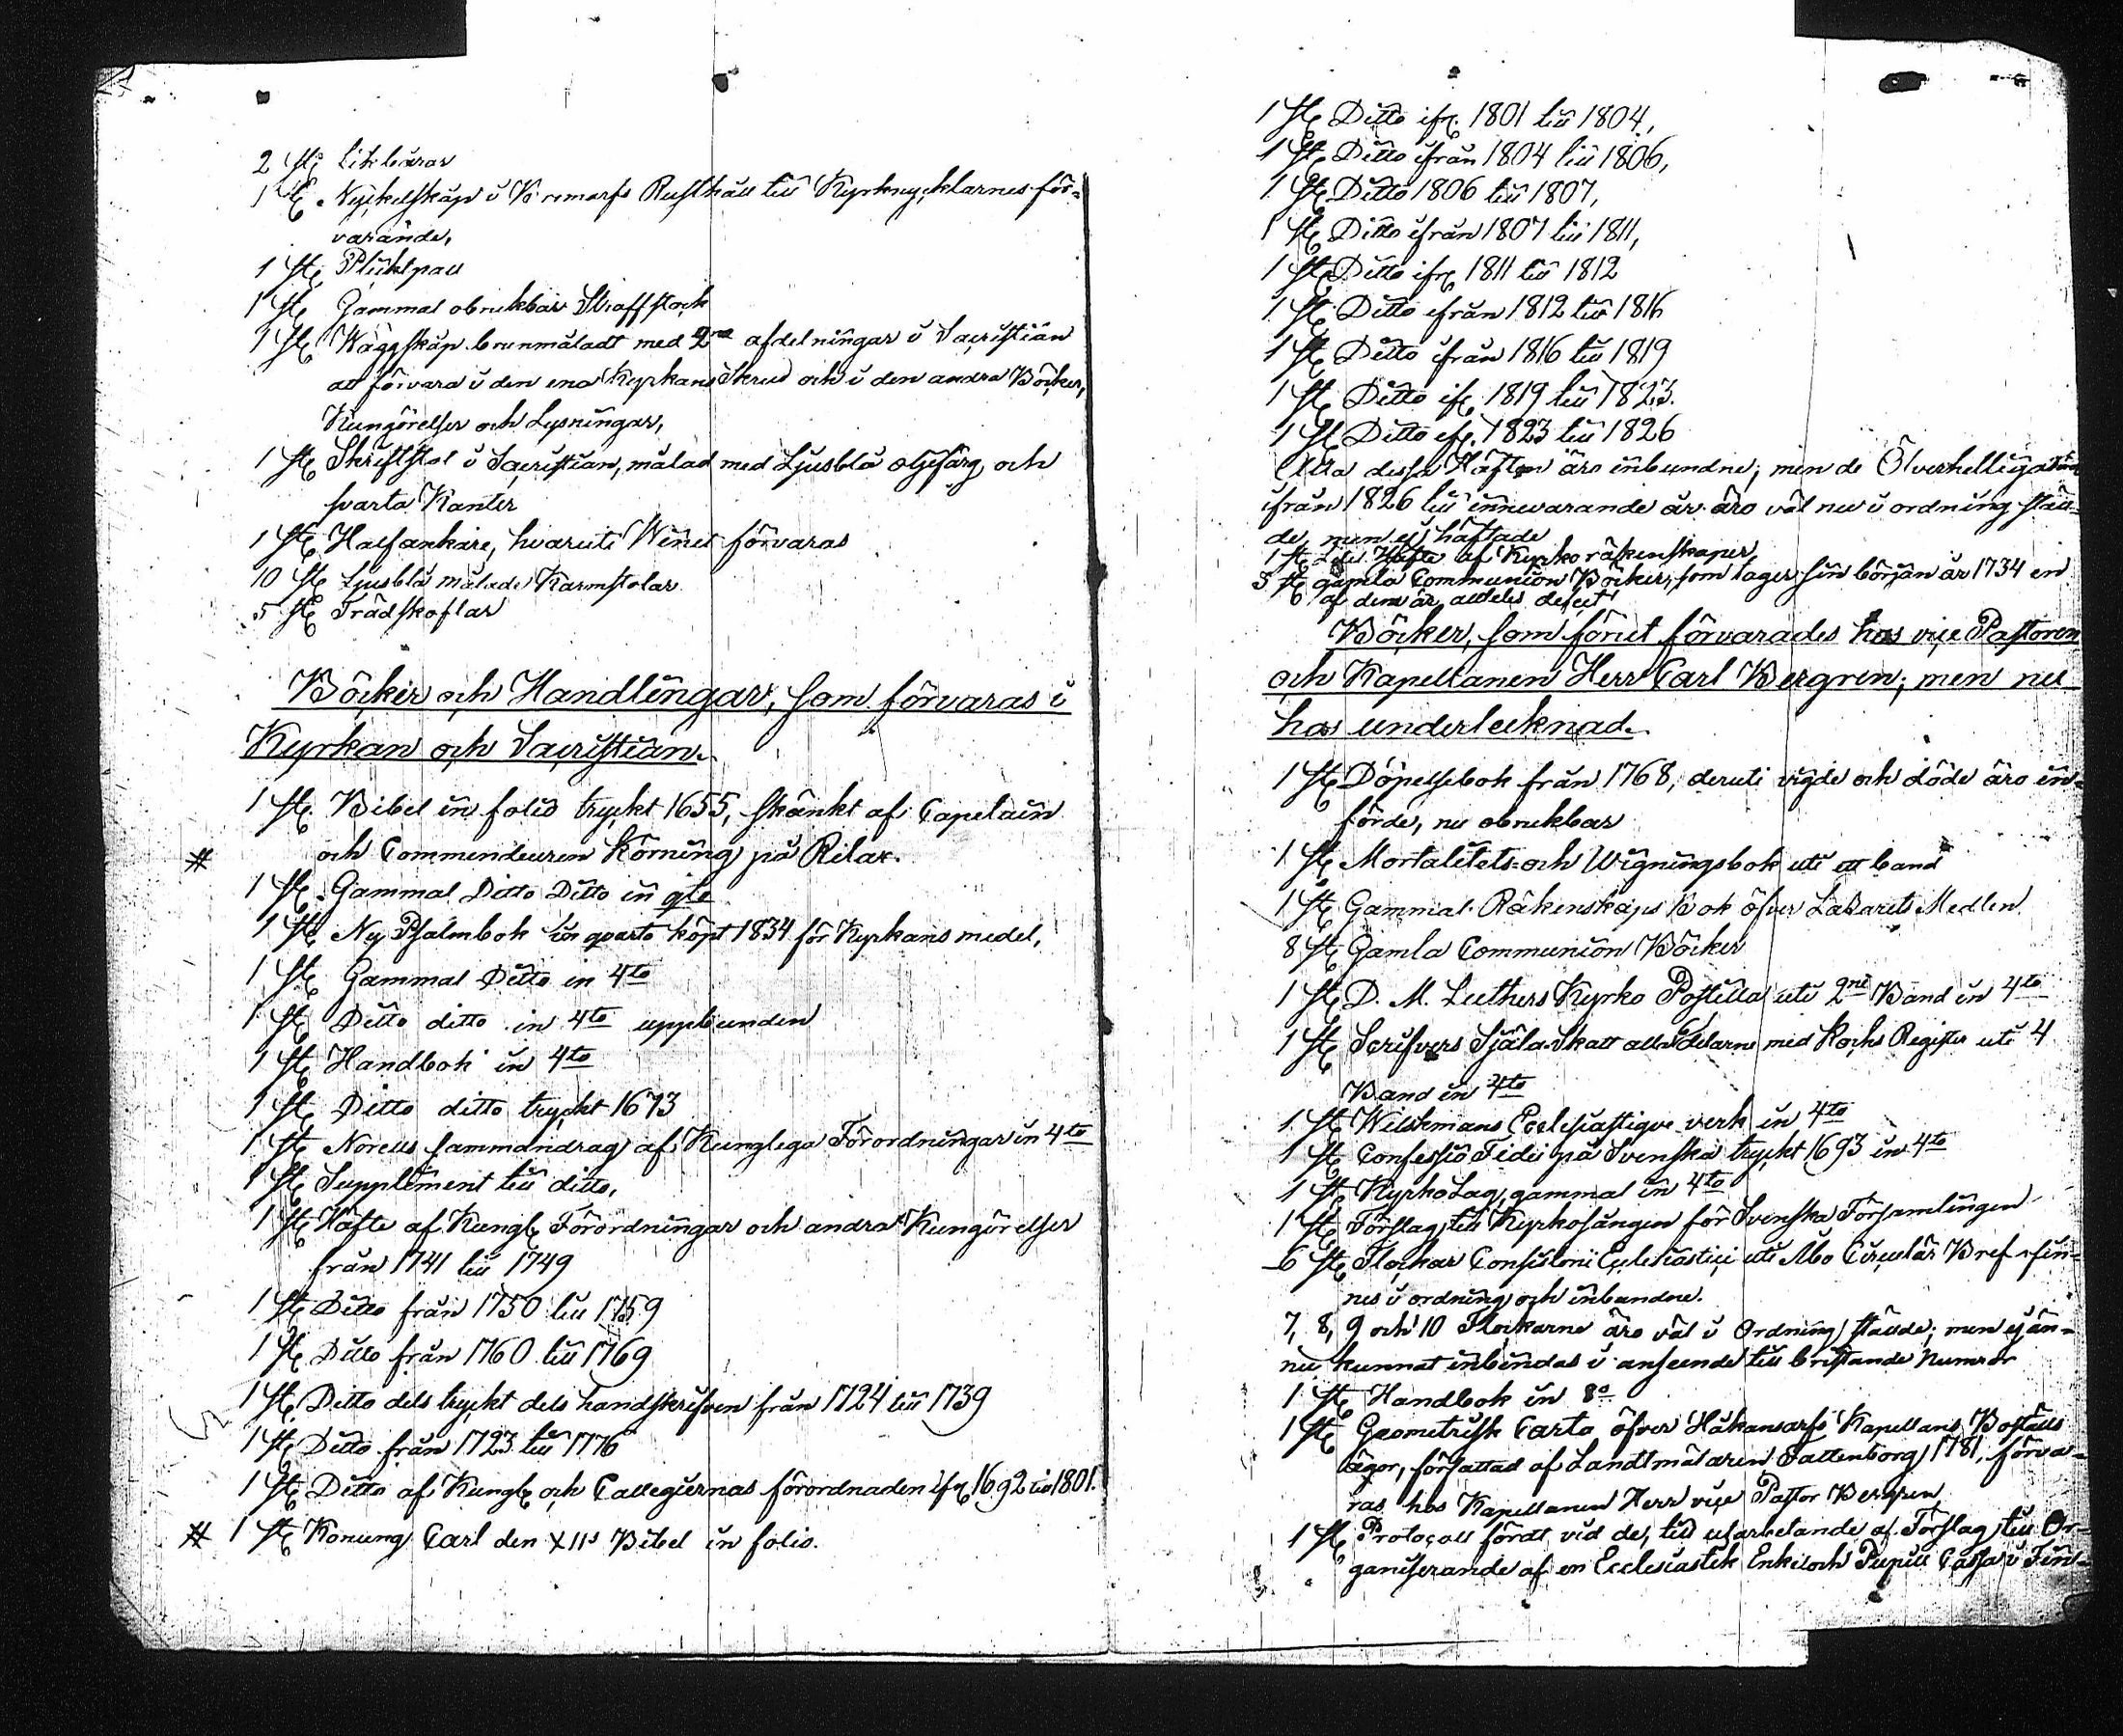 2 st. Likbårar
1 st. Nyckelskåp i Bromarfs Rusthåll till Kyrknycklarnes för-
varande,
1 st. Pliktpall
1 st. Gammal obrukbar Straffstock
1 st. Wäggskåp brunmåladt med 2ne afdelningar i Sacristian
att förvara i den ena Kyrkans Skrud och i den andra Böcker,
Kungörelser och Lysningar,
1 st. Skriftstol i Sacristian, målad med Ljusblå oljefärg och
svarta Kanter
1 st. Halfankare, hvaruti Winet förvaras
10 st. Ljusblå målade Karmstolar
5 st. Trädskoflar
Böcker och Handlingar, som förvaras i
Kyrkan och Sacristian.
1 st. Bibel in folio tryckt 1655, skänkt af Capetain
# och Commendeuren Körning på Rilax.
1 st. Gammal Ditto Ditto in qto
1 st. Ny Psalmbok in quarto köpt 1834 för Kyrkans medel,
1 st. Gammal Ditto in 4to
1 st. Ditto ditto in 4to uppbunden
1 st. Handbok in 4to
1 st. Ditto ditto tryckt 1673
1 st. Norells sammandrag af Kungliga Förordningar in 4to
1 st. Supplement till ditto,
1 st. Häfte af Kungl. Förordningar och andra Kungörelser
från 1741 till 1749
1 st. Ditto från 1750 till 1759
1 st. Ditto från 1760 till 1769
1 st. Ditto dels tryckt dels handskrifven från 1724 till 1739
1 st. Ditto från 1723 till 1776
1 st. Ditto af Kungl. och Collegiernas förordnaden ifr. 1692 till 1801.
# 1 st. Konung Carl den XIIs Bibel in folio.
1 st. Ditto ifr. 1801 till 1804,
1 st. Ditto ifrån 1804 till 1806,
1 st. Ditto 1806 till 1807,
1 st. Ditto ifrån 1807 till 1811,
1 st. Ditto ifr. 1811 till 1812
1 st. Ditto ifrån 1812 till 1816
1 st. Ditto ifrån 1816 till 1819
1 st. Ditto ifr. 1819 till 1823.
1 st. Ditto ifr. 1823 till 1826
Alla dessa Häften äro inbundne; men de
ifrån 1826 till innevarande år äro väl nu i ordning stäl-
de, men ej häftade
1 st. Häfte af Kyrko räkenskaper,
3 st. gamla Communion Böcker, som tager sin början år 1734 en
af dem är alldeles defect
Böcker, som förut förvarades hos vice Pastoren
och Kapellanen Herr Carl Bergren; men nu
hos undertecknad.
1 st. Döpelsebok från 1768, deruti vigde och döde äro in-
förde, nu obrukbar
1 st. Mortalitets- och Wigningsbok uti ett band
1 st. Gammal Räkenskaps Bok öfver Lazarets Medlen
8 st. Gamla Communion Böcker
1 st. D. M. Luthers Kyrko Postilla uti 2ne Band in 4to
1 st. Scrifvers Själa-Skatt alla delarne med Kochs Register uti 4
Band in 4to
1 st. Wilskmans Ecclesiastique verk in 4to
1 st. Confessio Fidei på Svenska tryckt 1693 in 4to
1 st. Kyrko Lag, gammal in 4to
1 st. Förslag till Kyrkosången för Svenska Församlingen
6 st. Flockar Consistorii Ecclesiastici uti Åbo Circulär Bref fin-
nes i ordning och inbundne.
7, 8, 9 och 10 Flockarne äro väl i Ordning stälde; men ej än-
nu kunnat inbindas i anseende till bristande Numror
1 st. Handbok in 8o
1 st. Geometrisk Carta öfver Håkansarfs Kapellans Boställs
ägor, författad af Landtmätaren Fattenborg 1781, förva-
ras hos Kapellanen Herr vice Pastor Bergren,
1 st. Protocoll fördt vid de, till utarbetande af Förslag till Or-
ganiserande af en Ecclesiastik Enke och Pupill Cassa i Fin-